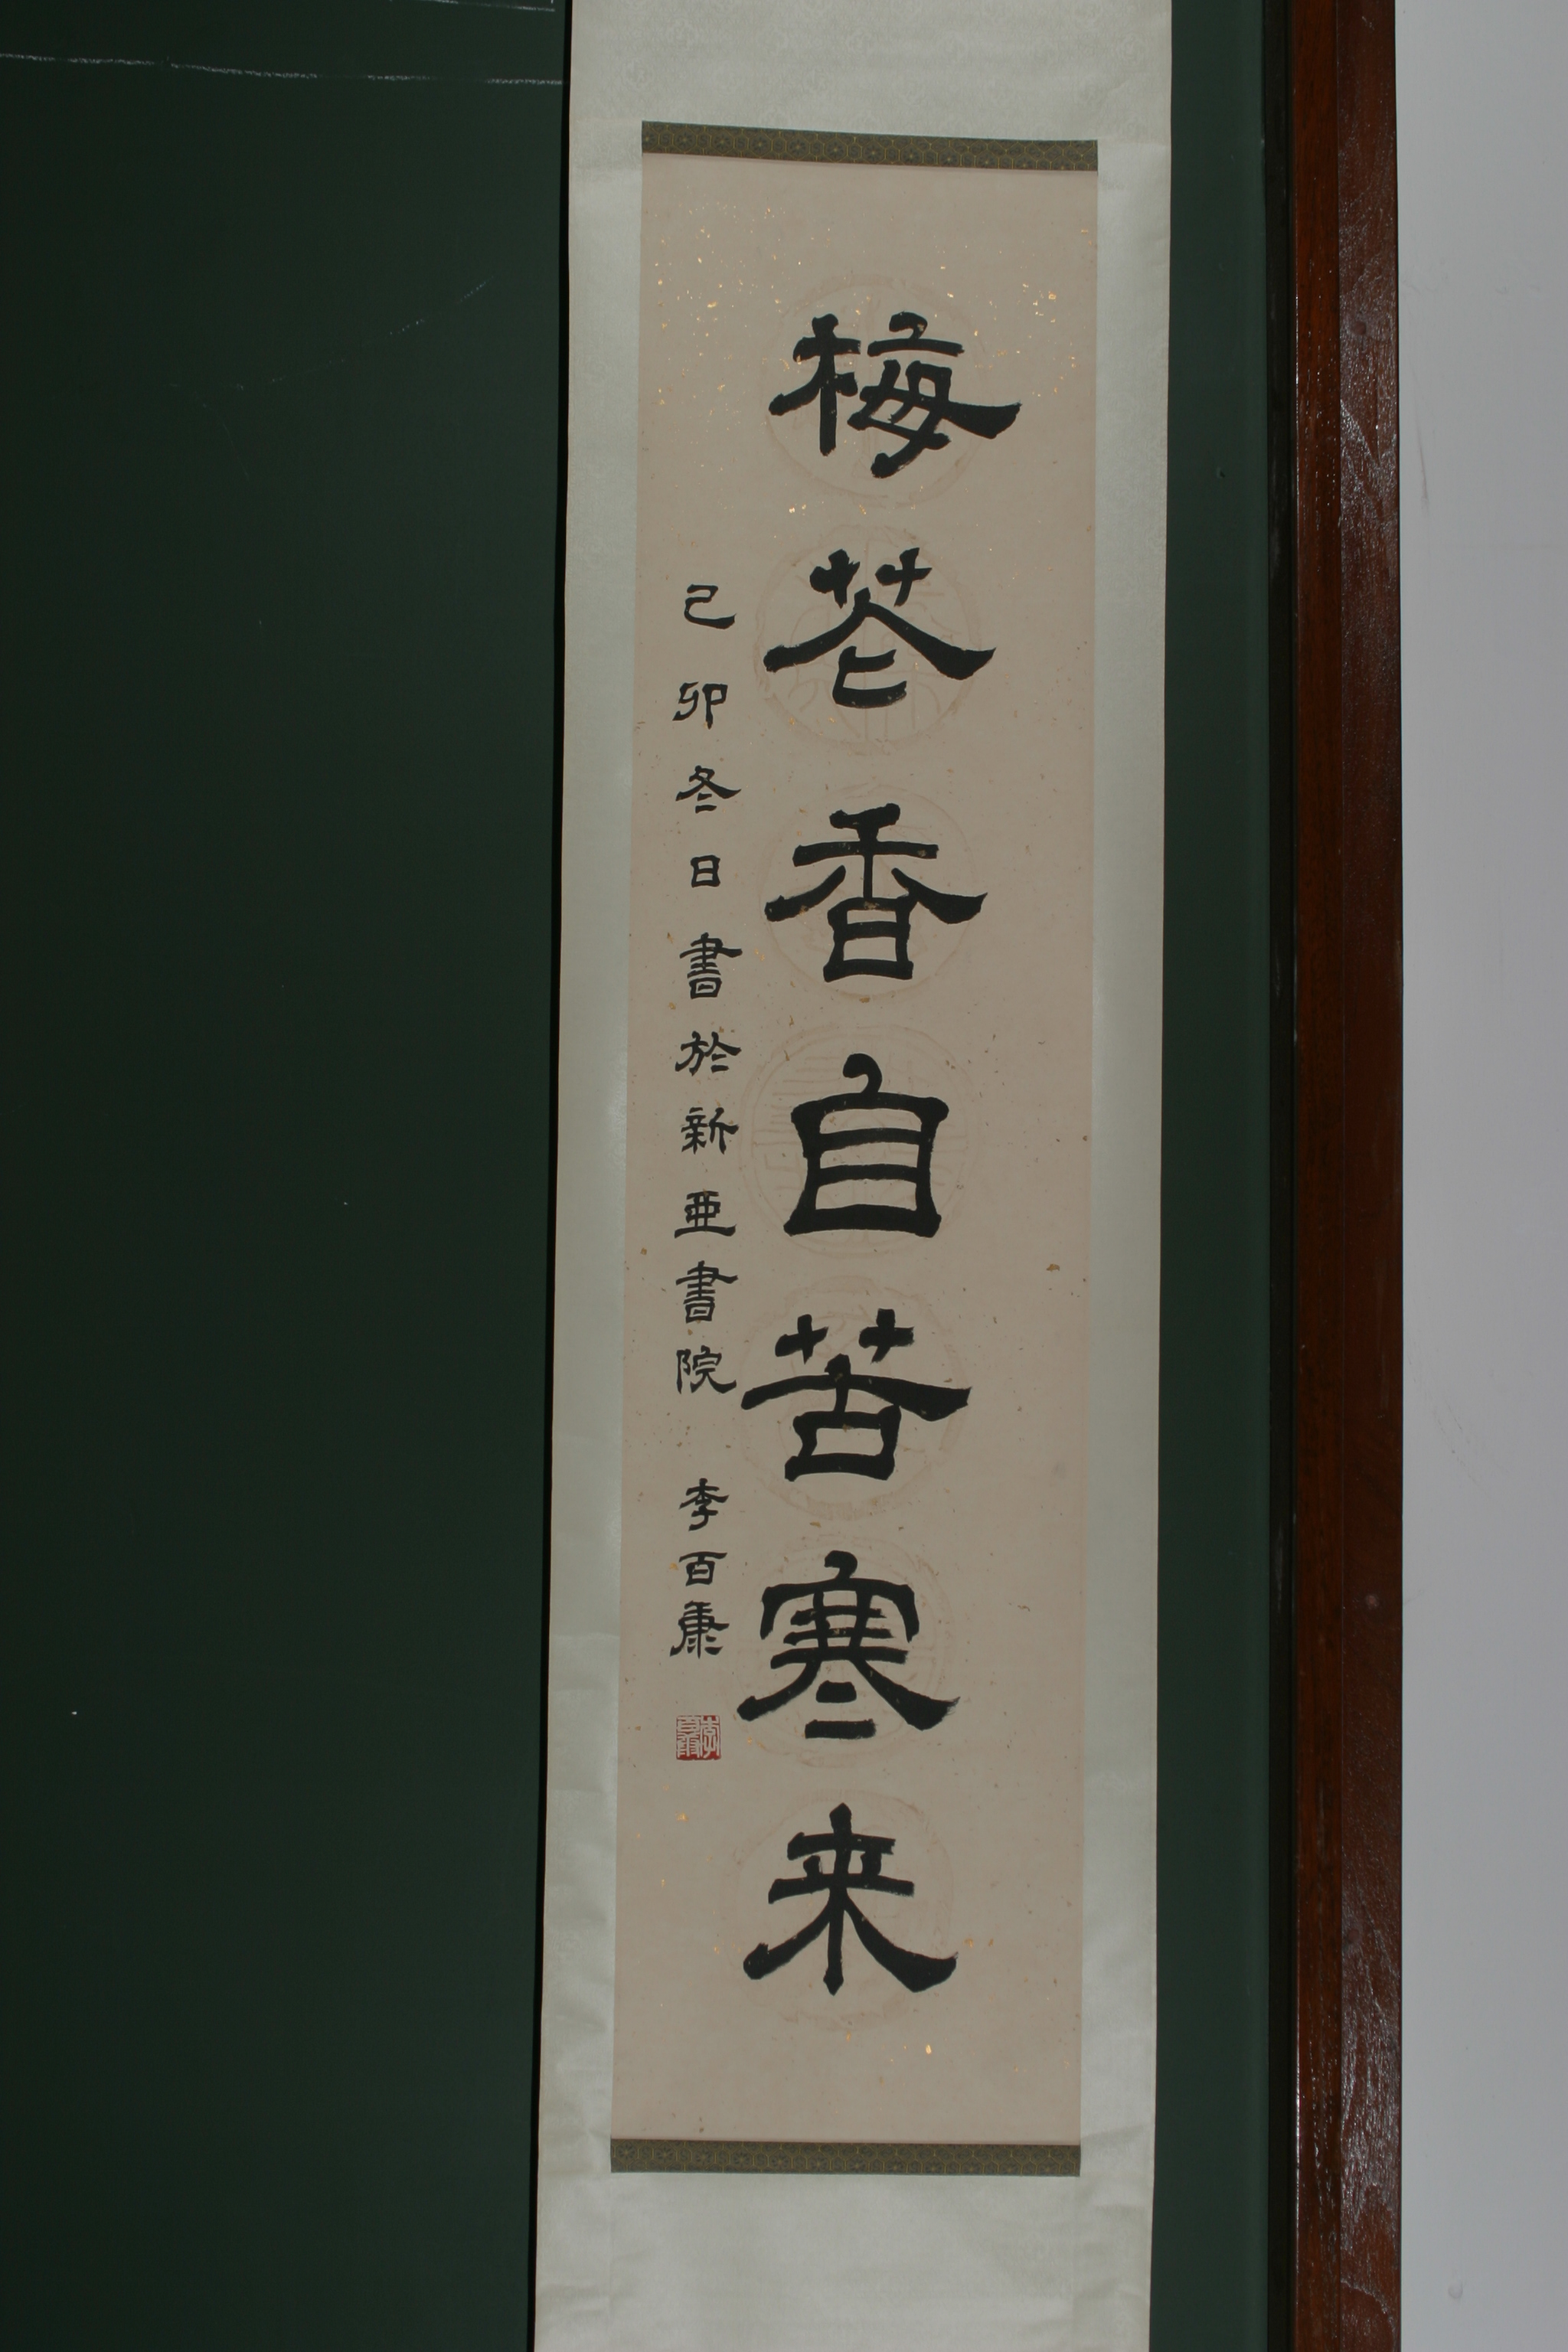 梅花香自苦寒来
己卯冬日書於新亞書院 李百康